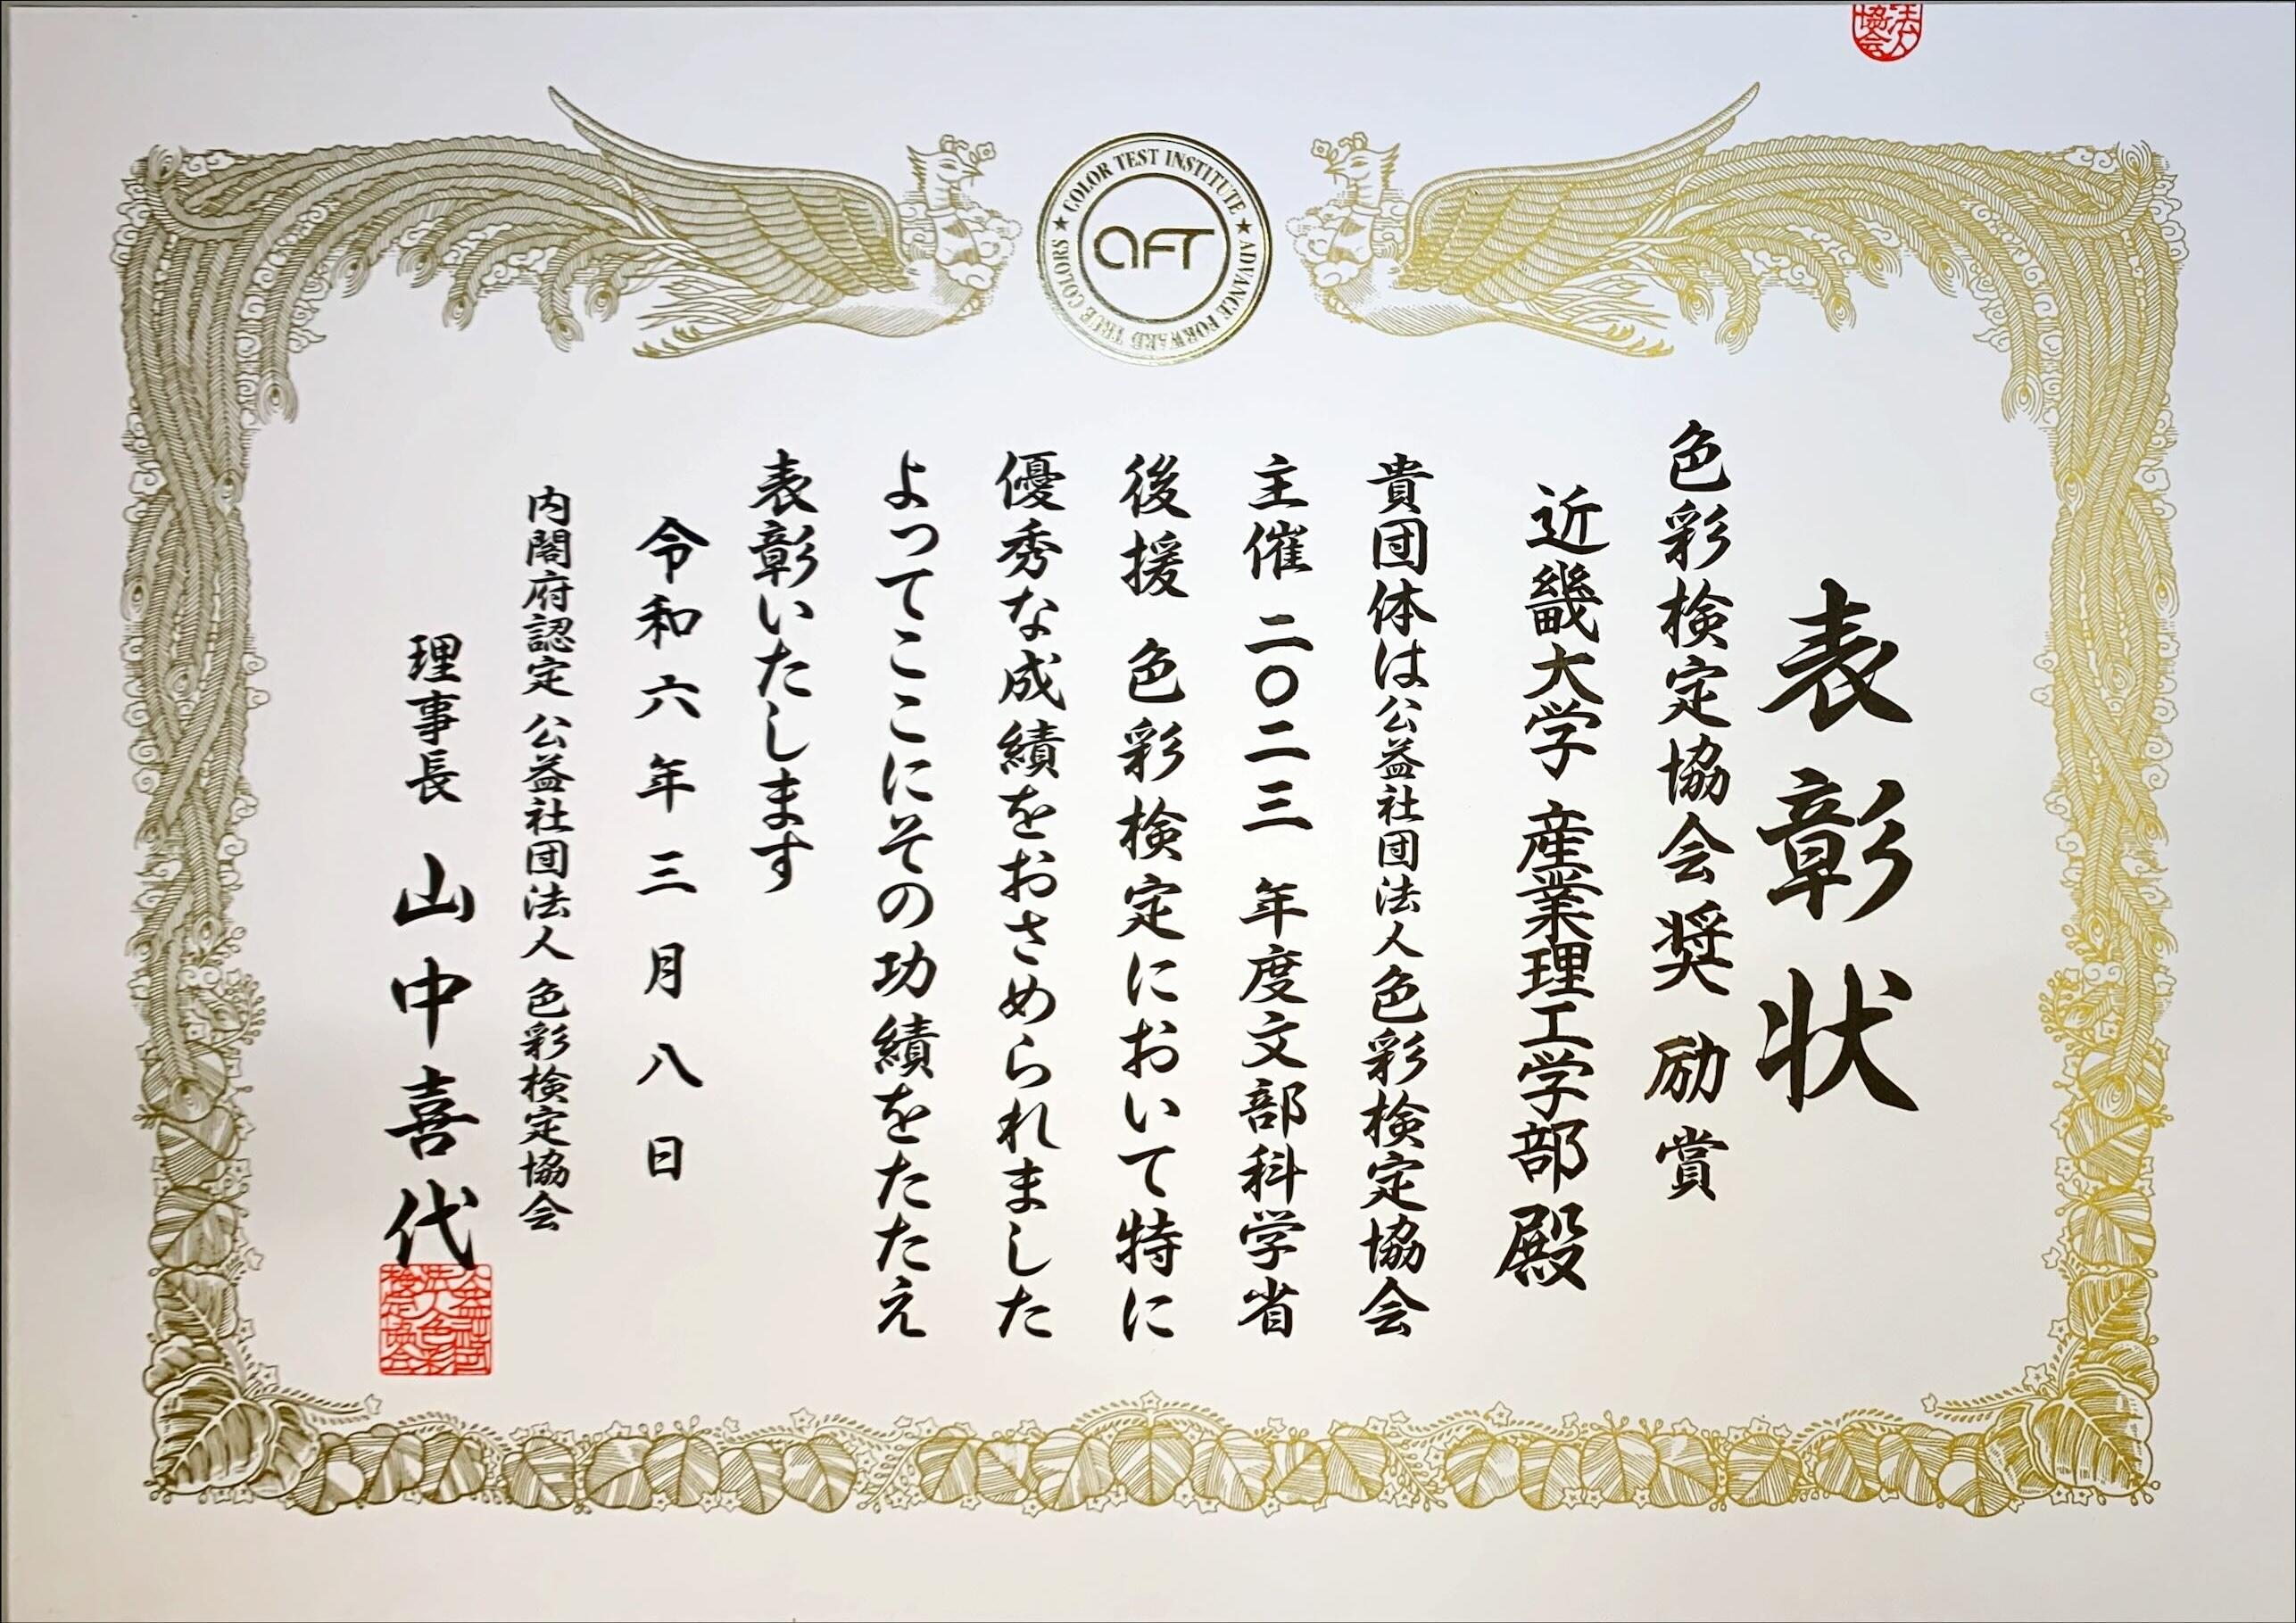 COLOR TEST INSTITUTE ★ ADVANCE FORWARD TRUE COLORS ★
aFT
表彰状
色彩検定協会奨励賞
近畿大学 産業理工学部 殿
貴団体は公益社団法人色彩検定協会
主催 二〇二三 年度文部科学省
後援 色彩検定において特に
優秀な成績をおさめられました
よってここにその功績をたたえ
表彰いたします
令和六年三月八日
内閣府認定 公益社団法人 色彩検定協会
理事長 山中喜代